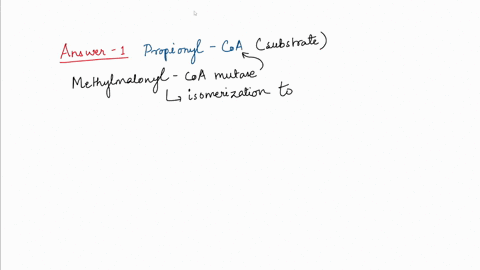 Answer-1 Propionyl - CoA (substrate)
Methylmalonyl - CoA mutase
isomerization to